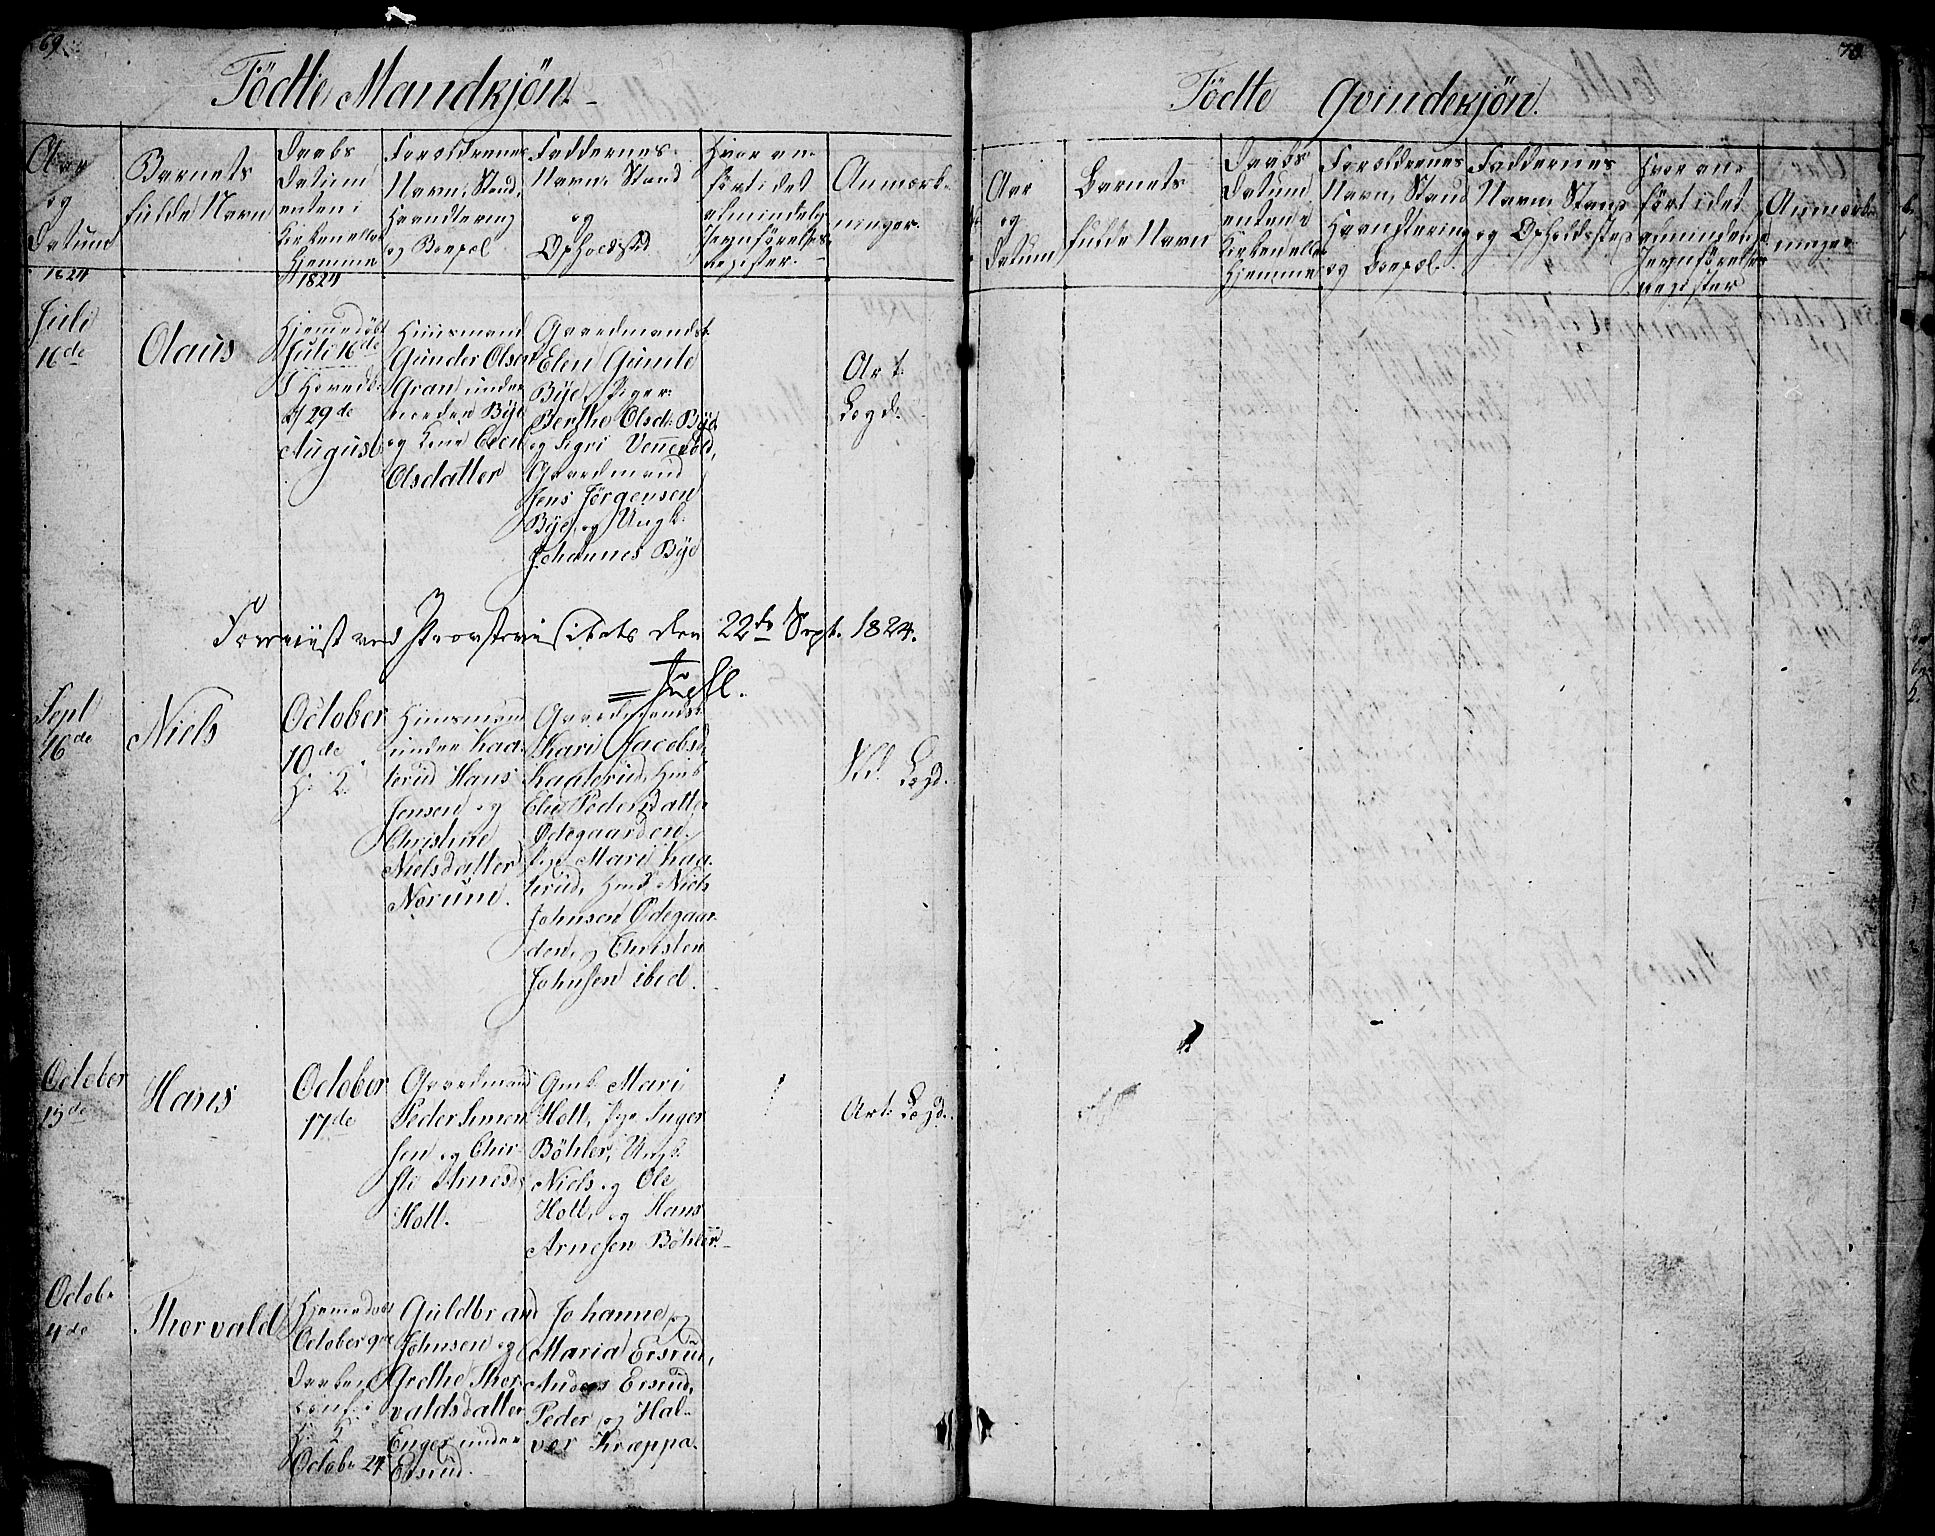 69
Födte Mandkjön
Aar
og
Datum
Barnets
fulde Navn
Daabs
Datum
enten i
Kirken eller
Hjemme
Foreldrenes
Navn, Stand,
Haandtering
og Boepæl
Faddernes
Navn, Stand
og
Opholdsted
Hvor an-
ført i det
almindelig
Jevnførelses
Register.
Anmærk-
ninger.
1824
1824
Juli
16de
Olaus
Hjemedöbt
Juli 16de
29de
August
Huusmand
Gunder Olsen
Gran under
Bye
og Kone
Olsdatter
Gaardmands
Elen Gunild
Bye, Piger
Berthe Olsd. Bye
og Sigri Vennevold,
Gaardmand
Jens Jörgensen
Bye, og Ungk.
Johannes Bye
Art.
Legd.
ved Provstevisitats den 22de Sept. 1824.
Sept
16de
Niels
October
10de
H. K.
Huusmand
under Kaa-
terud Hans
Jensen og
Christine
Nielsdatter
Norum.
Gaardmands
Kari Jacobsd.
Kaaterud, Hmd
Elie Pedersdatter
Ödegaarden,
Pige Mari Kaa-
terud, Hmd Niels
Johnsen Ödegaar-
den, og Christen
Johnsen ibid.
Legd.
October
15de
Hans
October
17de
Gaardmand
Peder Simen-
sen og Chir-
sti Arnesd.
Holt.
Gmk. Mari
Holt, Pige Inger
Böhler, Ungk.
Niels og Ole
Holt, og Hans
Arnesen Böhler.
Art. Legd.
Octobr
4de
Thorvald
Hjemedöbt
October 9de
Daaben
conf. i
H. K.
Octobr 24
Guldbrand
Johnsen og
Grethe Thor-
valdsdatter
Enger under
Ersrud.
Johanne og
Maria Ersrud,
Anders Ersrud,
Peder og Hal-
vor Kræppa.
70
Födte Qvindekjön.
Aar
og
Datum
Barnets
fulde Navn
Daabs
Datum
enten i
Kirken eller
Hjemme
Foreldrenes
Navn, Stand
Haandtering
og Boepæl.
Faddernes
Navn, Stand
og Opholdsted
Hvor an-
ført i det
almindelig
Jevnførelses
register
Anmærk-
ninger